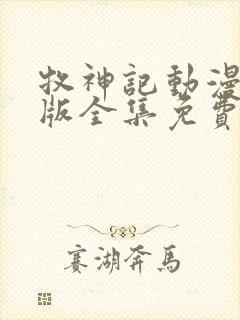 牧神記動漫
版全集免費
賽湖奔馬